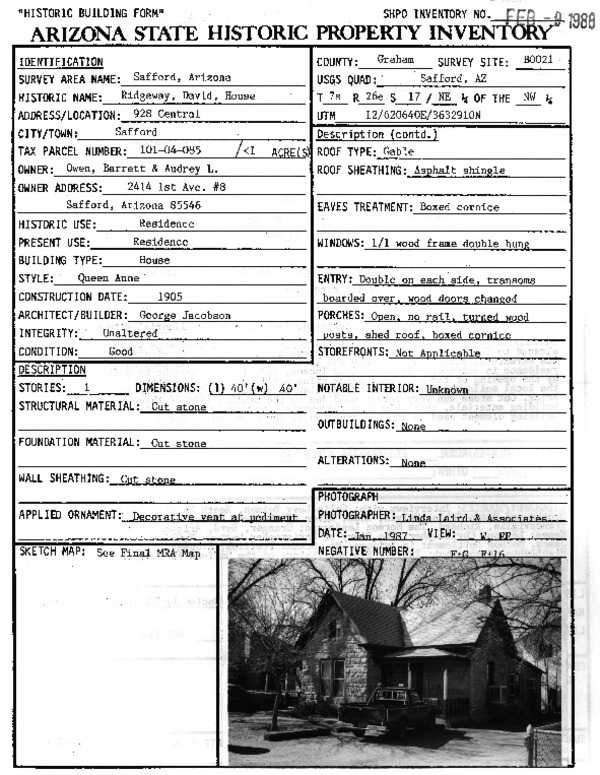 "HISTORIC BUILDING FORM"
SHPO INVENTORY NO.
FEB -9 1988
ARIZONA STATE HISTORIC PROPERTY INVENTORY
IDENTIFICATION
SURVEY AREA NAME: Safford, Arizona
HISTORIC NAME: Ridgeway, David, House
ADDRESS/LOCATION: 928 Central
CITY/TOWN: Safford
TAX PARCEL NUMBER: 101-04-085 /<1 ACRE(S)
OWNER: Owen, Barrett & Audrey L.
OWNER ADDRESS: 2414 1st Ave. #8
Safford, Arizona 85546
HISTORIC USE: Residence
PRESENT USE: Residence
BUILDING TYPE: House
STYLE: Queen Anne
CONSTRUCTION DATE: 1905
ARCHITECT/BUILDER: George Jacobson
INTEGRITY: Unaltered
CONDITION: Good
DESCRIPTION
STORIES: 1 DIMENSIONS: (l) 40'(w) 40'
STRUCTURAL MATERIAL: Cut stone
FOUNDATION MATERIAL: Cut stone
WALL SHEATHING: Cut stone
APPLIED ORNAMENT: Decorative vent at pediment
SKETCH MAP: See Final MRA Map
COUNTY: Graham SURVEY SITE: B0021
USGS QUAD: Safford, AZ
T 7s R 26e S 17 / NE ¼ OF THE NW ¼
UTM 12/620640E/3632910N
Description (contd.)
ROOF TYPE: Gable
ROOF SHEATHING: Asphalt shingle
EAVES TREATMENT: Boxed cornice
WINDOWS: 1/1 wood frame double hung
ENTRY: Double on each side, transoms
boarded over, wood doors changed
PORCHES: Open, no rail, turned wood
posts, shed roof, boxed cornice
STOREFRONTS: Not Applicable
NOTABLE INTERIOR: Unknown
OUTBUILDINGS: None
ALTERATIONS: None
PHOTOGRAPH
PHOTOGRAPHER: Linda Laird & Associates
DATE: Jan. 1987 VIEW: W,
NEGATIVE NUMBER: